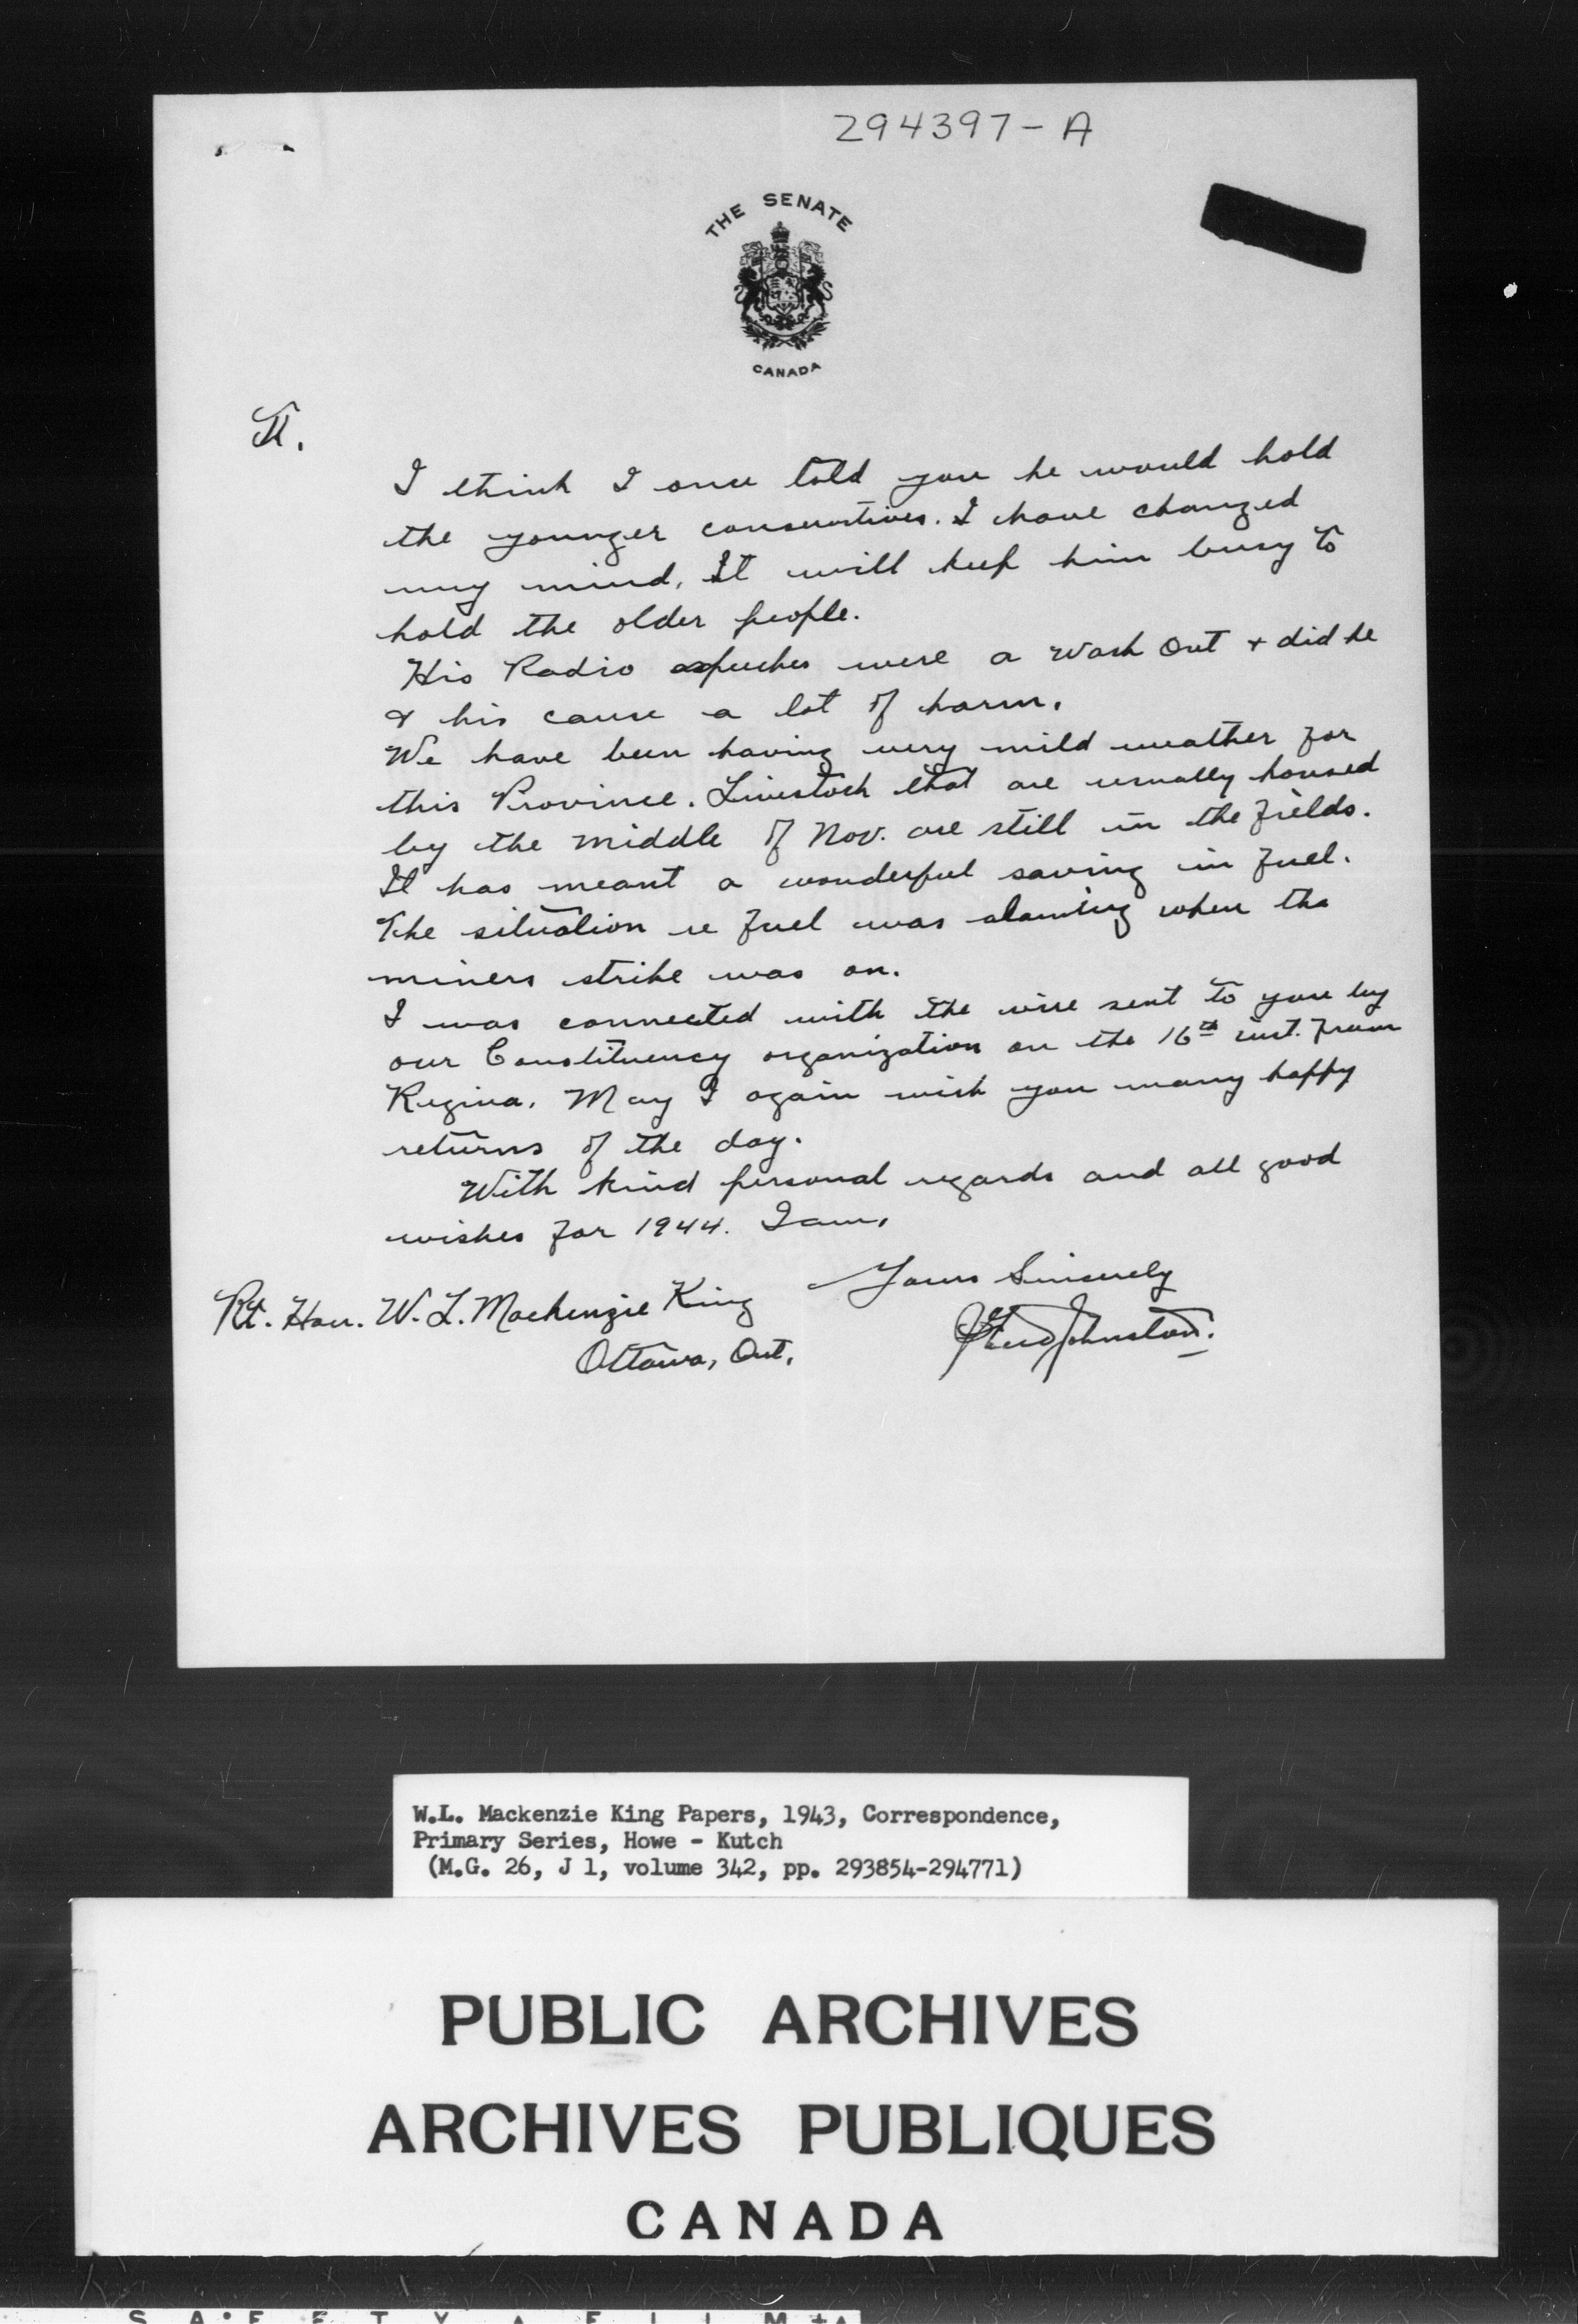 294397-A
THE SENATE
CANADA
II.
I think I once told you he would hold
the younger conservatives. I have changed
my mind. It will keep him busy to
hold the older people.
His Radio speeches were a wash out & did he
& his cause a lot of harm.
We have been having very mild weather for
this Province. Livestock that are usually housed
by the middle of Nov. are still in the fields.
It has meant a wonderful saving in fuel.
The situation re fuel was alarming when the
miners strike was on.
I was connected with the wire sent to you by
our Constituency organization on the 16th inst. from
Regina. May I again wish you many happy
returns of the day.
With kind personal regards and all good
wishes for 1944. I am,
Yours Sincerely
Rt. Hon. W. L. Mackenzie King
Ottawa, Ont.
Johnston.
W.L. Mackenzie King Papers, 1943, Correspondence,
Primary Series, Howe - Kutch
(M.G. 26, J 1, volume 342, pp. 293854-294771)
PUBLIC ARCHIVES
ARCHIVES PUBLIQUES
CANADA